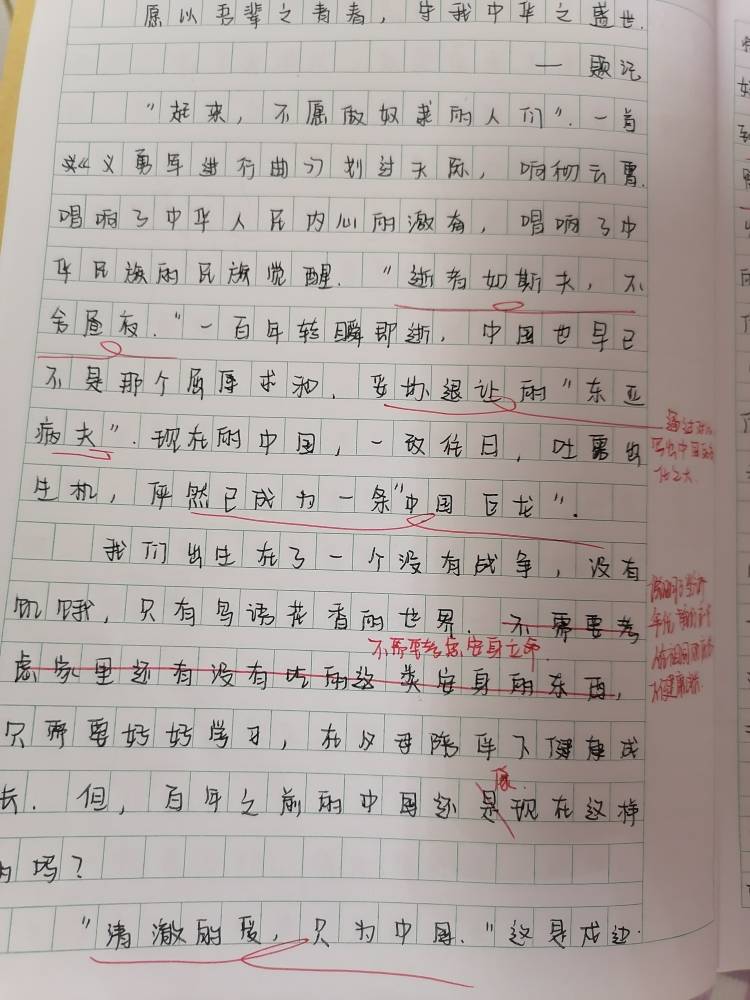 愿以吾辈之青春，守我中华之盛世.
— 题记
"起来，不愿做奴隶的人们".一首
义勇军进行曲》划过天际，响彻云霄.
唱响了中华人民内心的激有，唱响了中
华民族的民族觉醒."逝者如斯夫，不
舍昼夜."一百年转瞬即逝.中国也早已
不是那个屈辱求和.妥协退让的"东亚
病夫".现在的中国，一改往日，吐露出
生机，俨然已成为一条"中国巨龙".
我们出生在了一个没有战争，没有
饥饿，只有鸟语花香的世界.不需要考
不需要考虑安身立命.
虑家里还有没有吃的这类安身的东西，
只需要好好学习，在父母陪伴下健康成
长.但，百年之前的中国还是现在这样
像.
的吗？
"清澈的爱，只为中国."这是戍边